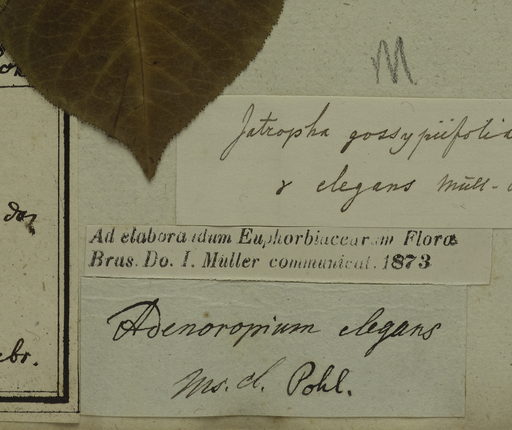 M
Jatropha gossypiifolia
γ elegans Müll-
Ad elaborandum Euphorbiacearum Florae
Bras. Do. I. Müller communicat. 1873
Adenoropium elegans
Ms. cl. Pohl.
ebr.